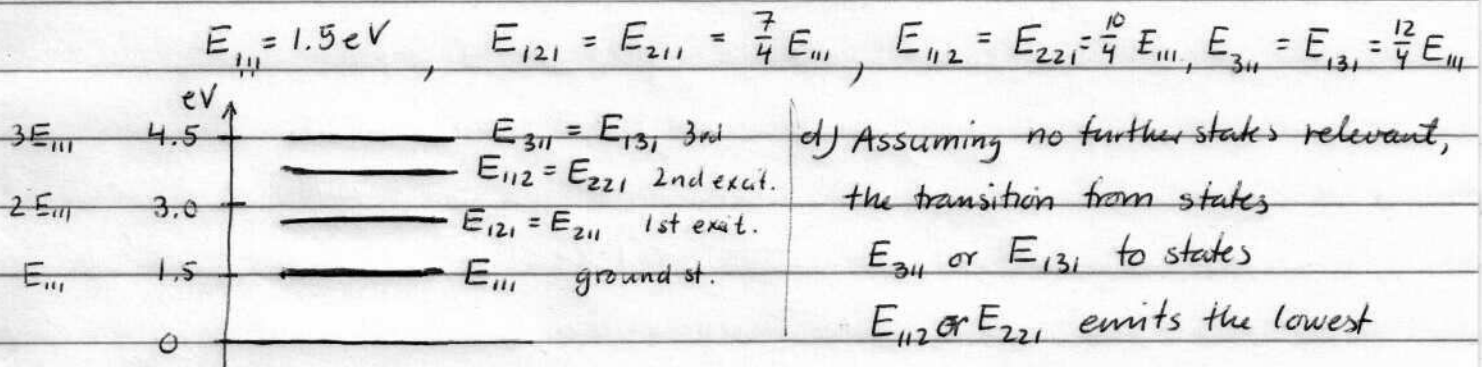 E₁₁₁ = 1.5 eV , E₁₂₁ = E₂₁₁ = 7/4 E₁₁₁ , E₁₁₂ = E₂₂₁ = 10/4 E₁₁₁, E₃₁₁ = E₁₃₁ = 12/4 E₁₁₁
eV
3E₁₁₁ 4.5 E₃₁₁ = E₁₃₁ 3rd
E₁₁₂ = E₂₂₁ 2nd excit.
2E₁₁₁ 3.0
E₁₂₁ = E₂₁₁ 1st exit.
E₁₁₁ 1,5 E₁₁₁ ground st.
0
d) Assuming no further states relevant,
the transition from states
E₃₁₁ or E₁₃₁ to states
E₁₁₂ or E₂₂₁ emits the lowest